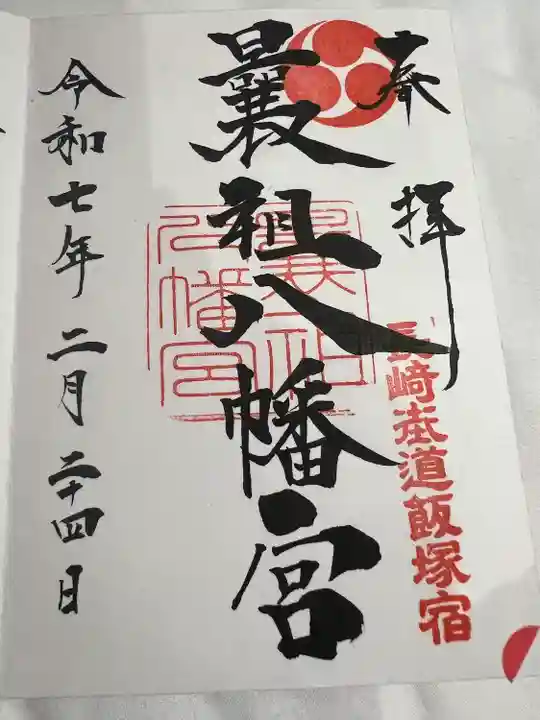 奉拝
長崎街道飯塚宿
曩祖八幡宮
曩祖八幡宮
令和七年二月二十四日